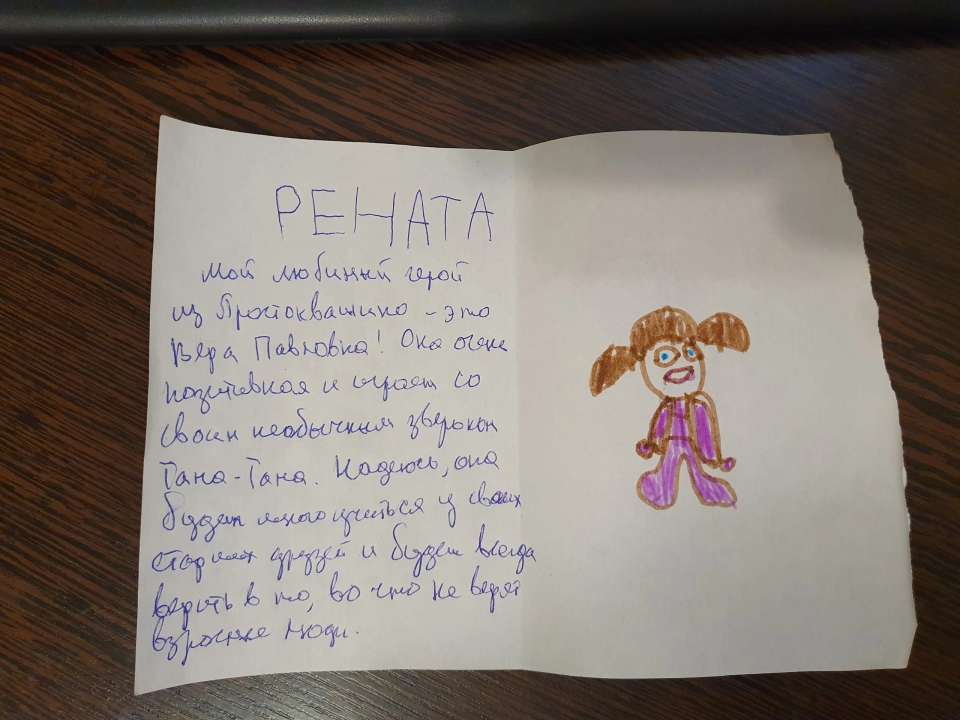 РЕНАТА
Мой любимый герой
из Простоквашино - это
Вера Павловна! Она очень
позитивная и играет со
своим необычным зверьком
Тама-Тама. Надеюсь, она
будет много учиться у своих
старших друзей и будет всегда
верить в то, во что не верят
взрослые люди.